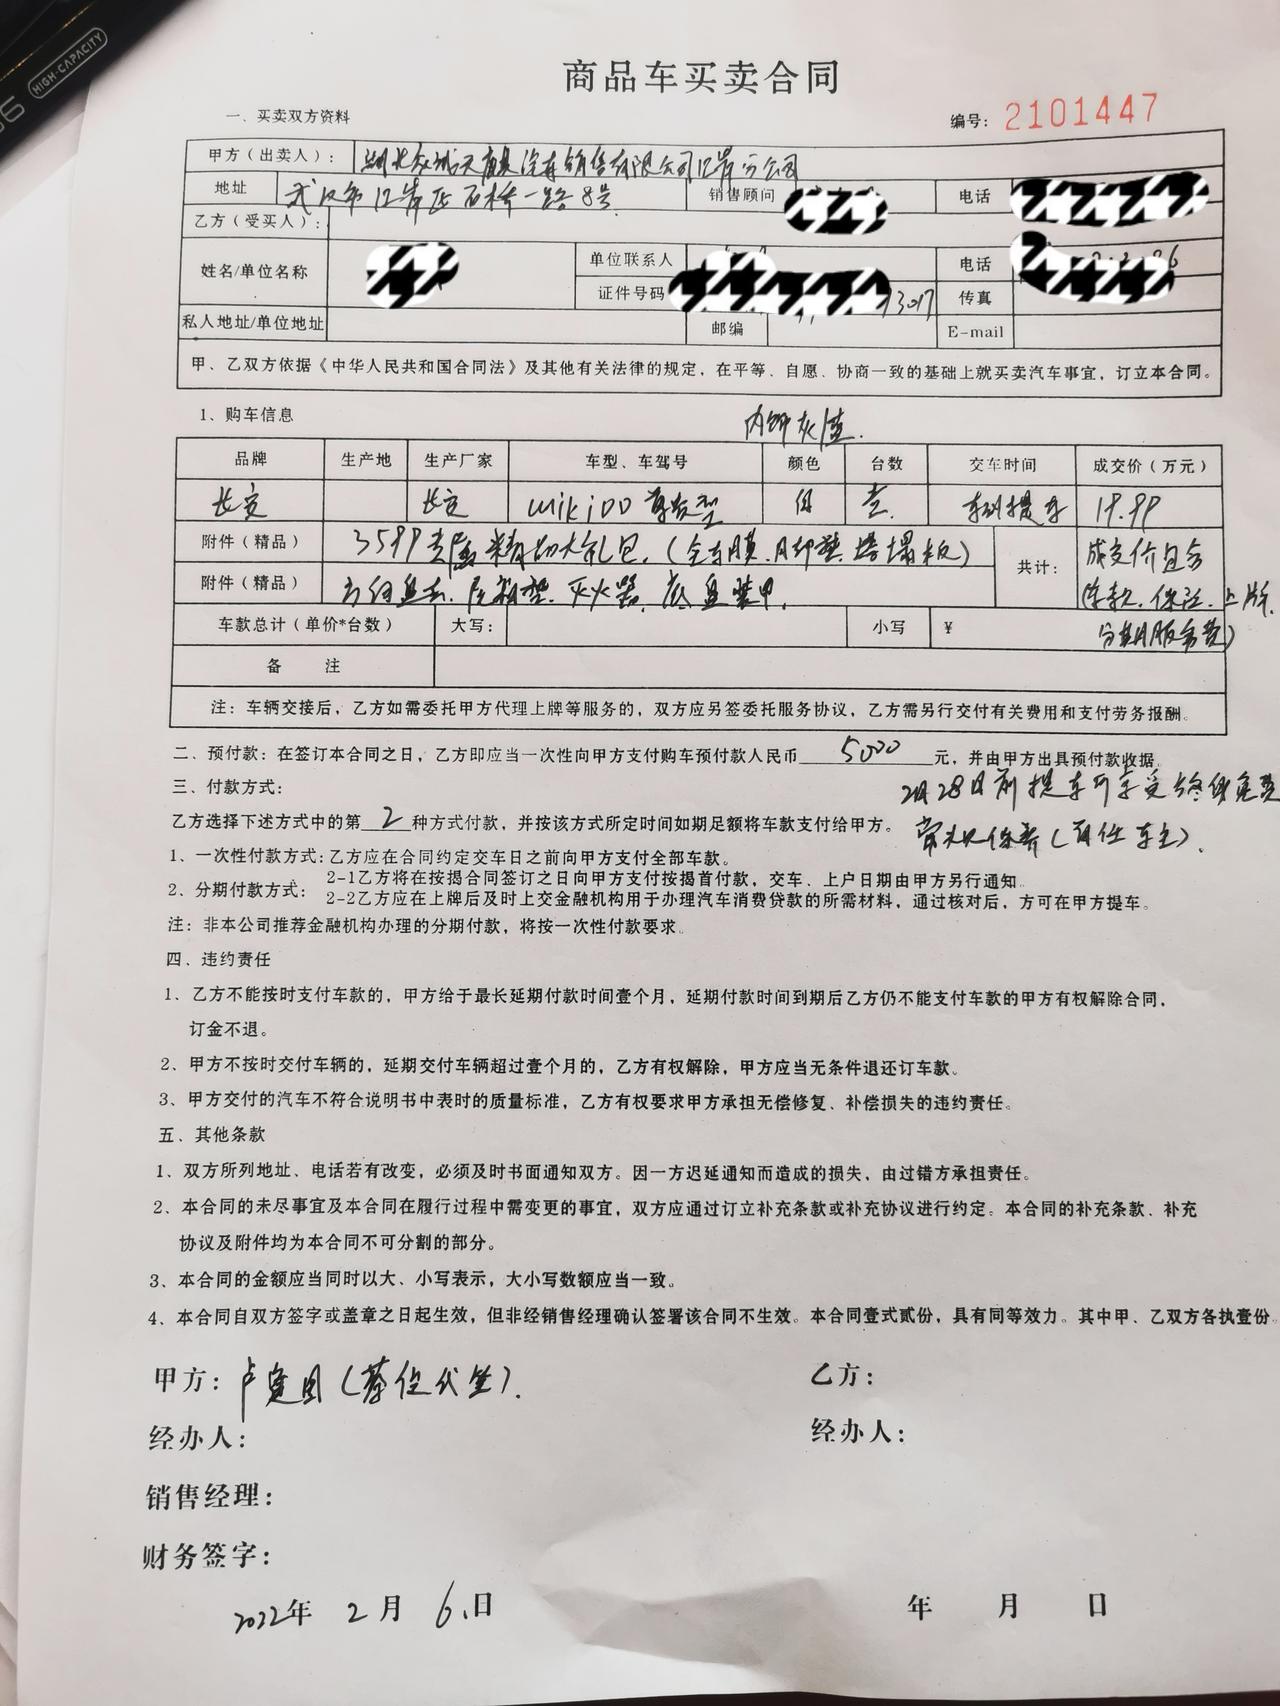 HIGH-CAPACITY
商品车买卖合同
一、买卖双方资料
编号：2101447
甲方（出卖人）： 汽车销售有限公司江岸分公司
地址 武汉市江岸区石桥一路8号 销售顾问 电话
乙方（受买人）：
姓名/单位名称 单位联系人 电话
证件号码 3017 传真
私人地址/单位地址 邮编 E-mail
甲、乙双方依据《中华人民共和国合同法》及其他有关法律的规定，在平等、自愿、协商一致的基础上就买卖汽车事宜，订立本合同。
1、购车信息
内饰灰
品牌 生产地 生产厂家 车型、车驾号 颜色 台数 交车时间 成交价（万元）
长安 长安 尊发型 白 壹 提车 19.99
附件（精品） 大礼包.（全车膜.脚垫. 共计： 成交价包含
附件（精品） 方向盘套.后箱垫.灭火器.底盘装甲. 保险.上牌.
车款总计（单价*台数） 大写： 小写 ¥ 分期服务费）
备 注
注：车辆交接后，乙方如需委托甲方代理上牌等服务的，双方应另签委托服务协议，乙方需另行交付有关费用和支付劳务报酬。
二、预付款：在签订本合同之日，乙方即应当一次性向甲方支付购车预付款人民币5000元，并由甲方出具预付款收据。
三、付款方式：
2月28日前提车可享受终身免费
乙方选择下述方式中的第2种方式付款，并按该方式所定时间如期足额将车款支付给甲方。
常规保养（首任车主）.
1、一次性付款方式：乙方应在合同约定交车日之前向甲方支付全部车款。
2、分期付款方式： 2-1乙方将在按揭合同签订之日向甲方支付按揭首付款，交车、上户日期由甲方另行通知。
2-2乙方应在上牌后及时上交金融机构用于办理汽车消费贷款的所需材料，通过核对后，方可在甲方提车。
注：非本公司推荐金融机构办理的分期付款，将按一次性付款要求。
四、违约责任
1、乙方不能按时支付车款的，甲方给于最长延期付款时间壹个月，延期付款时间到期后乙方仍不能支付车款的甲方有权解除合同，
订金不退。
2、甲方不按时交付车辆的，延期交付车辆超过壹个月的，乙方有权解除，甲方应当无条件退还订车款。
3、甲方交付的汽车不符合说明书中表时的质量标准，乙方有权要求甲方承担无偿修复、补偿损失的违约责任。
五、其他条款
1、双方所列地址、电话若有改变，必须及时书面通知双方。因一方迟延通知而造成的损失，由过错方承担责任。
2、本合同的未尽事宜及本合同在履行过程中需变更的事宜，双方应通过订立补充条款或补充协议进行约定。本合同的补充条款、补充
协议及附件均为本合同不可分割的部分。
3、本合同的金额应当同时以大、小写表示，大小写数额应当一致。
4、本合同自双方签字或盖章之日起生效，但非经销售经理确认签署该合同不生效。本合同壹式贰份，具有同等效力。其中甲、乙双方各执壹份。
甲方： 乙方：
经办人： 经办人：
销售经理：
财务签字：
2022年 2月 6.日 年 月 日